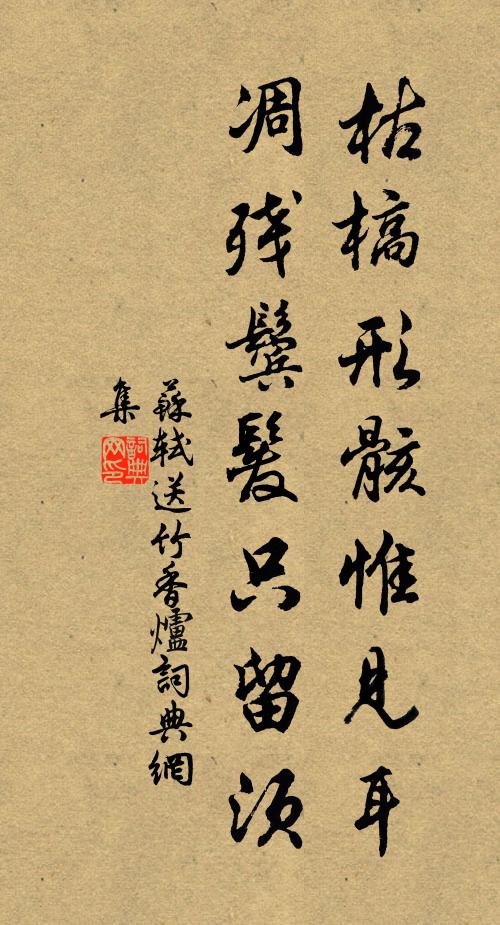 枯槁形骸惟見耳
凋残鬢髮只留須
蘇軾送竹香爐詞典網
集
詞典
网印